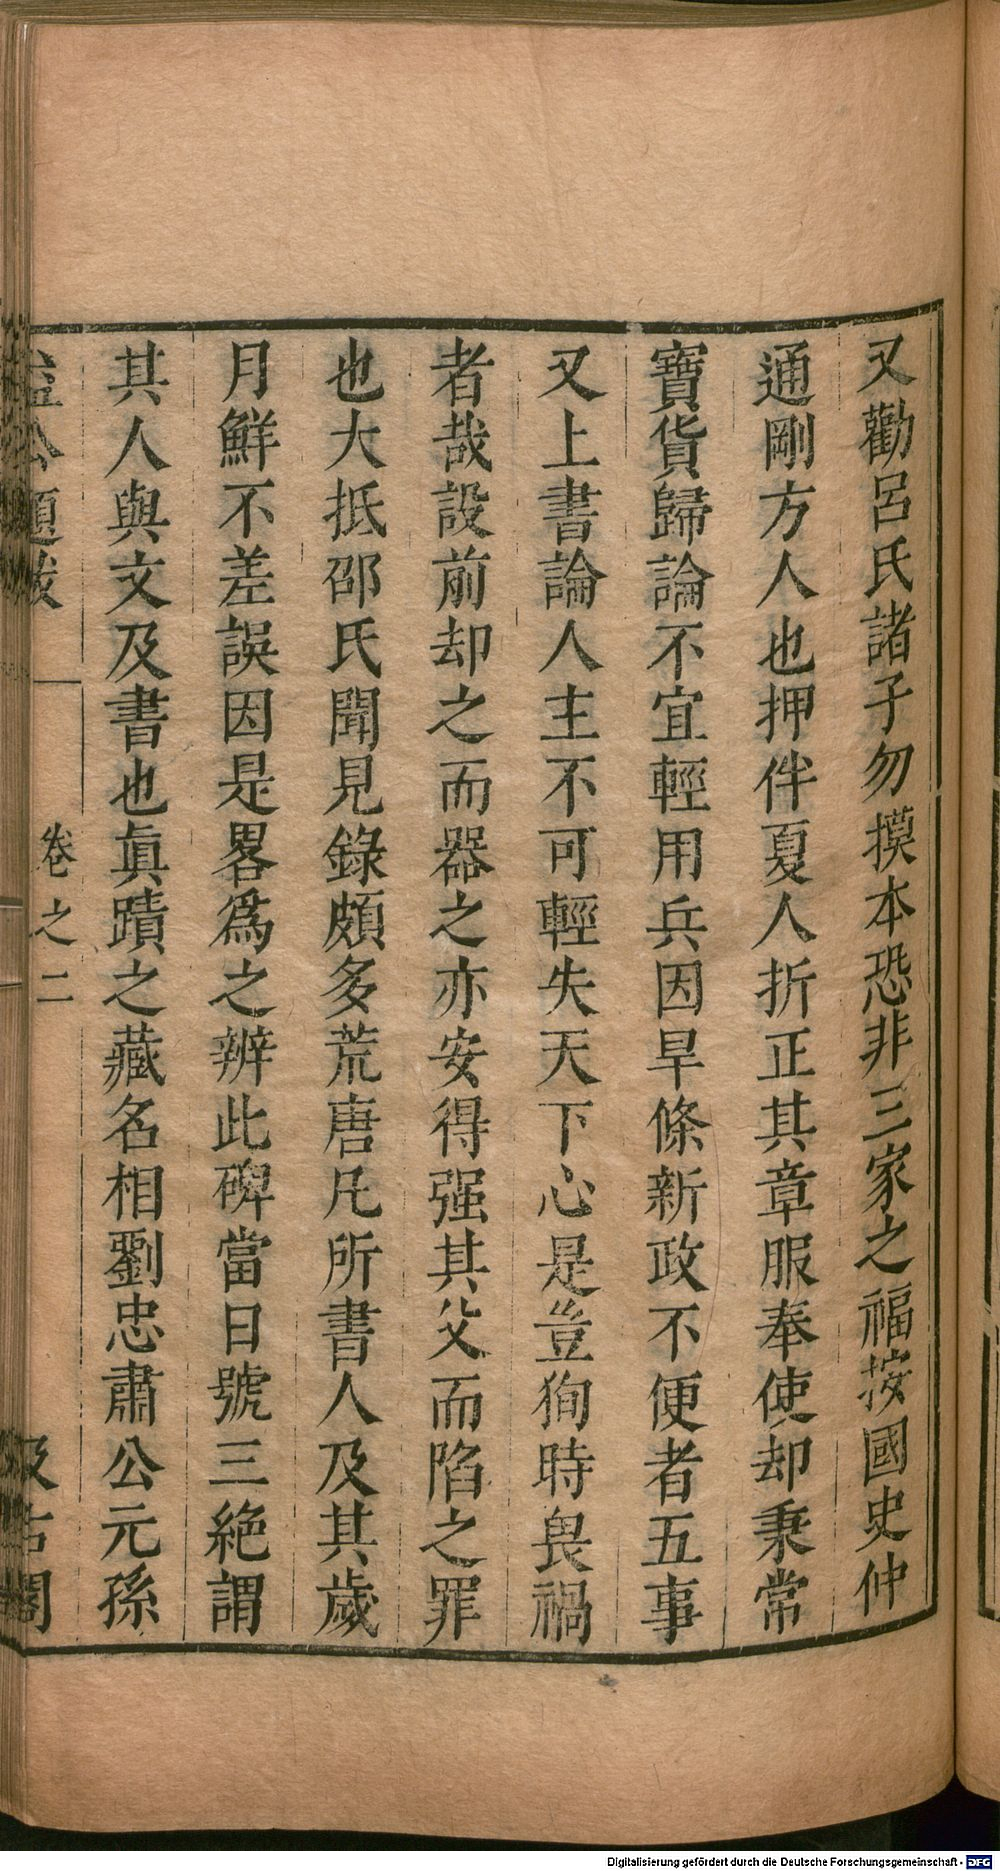 又勸呂氏諸子勿摸本恐非三家之福按國史仲
通剛方人也押伴夏人折正其章服奉使却秉常
寶貨歸論不宜輕用兵因旱條新政不便者五事
又上書論人主不可輕失天下心是豈狥時畏禍
者哉設前却之而器之亦安得强其父而陷之罪
也大抵邵氏聞見錄頗多荒唐凡所書人及其歲
月鮮不差誤因是畧爲之辨此碑當日號三絶謂
其人與文及書也眞蹟之藏名相劉忠肅公元孫
益公題跋 卷之二 汲古閣
Digitalisierung gefördert durch die Deutsche Forschungsgemeinschaft - DFG